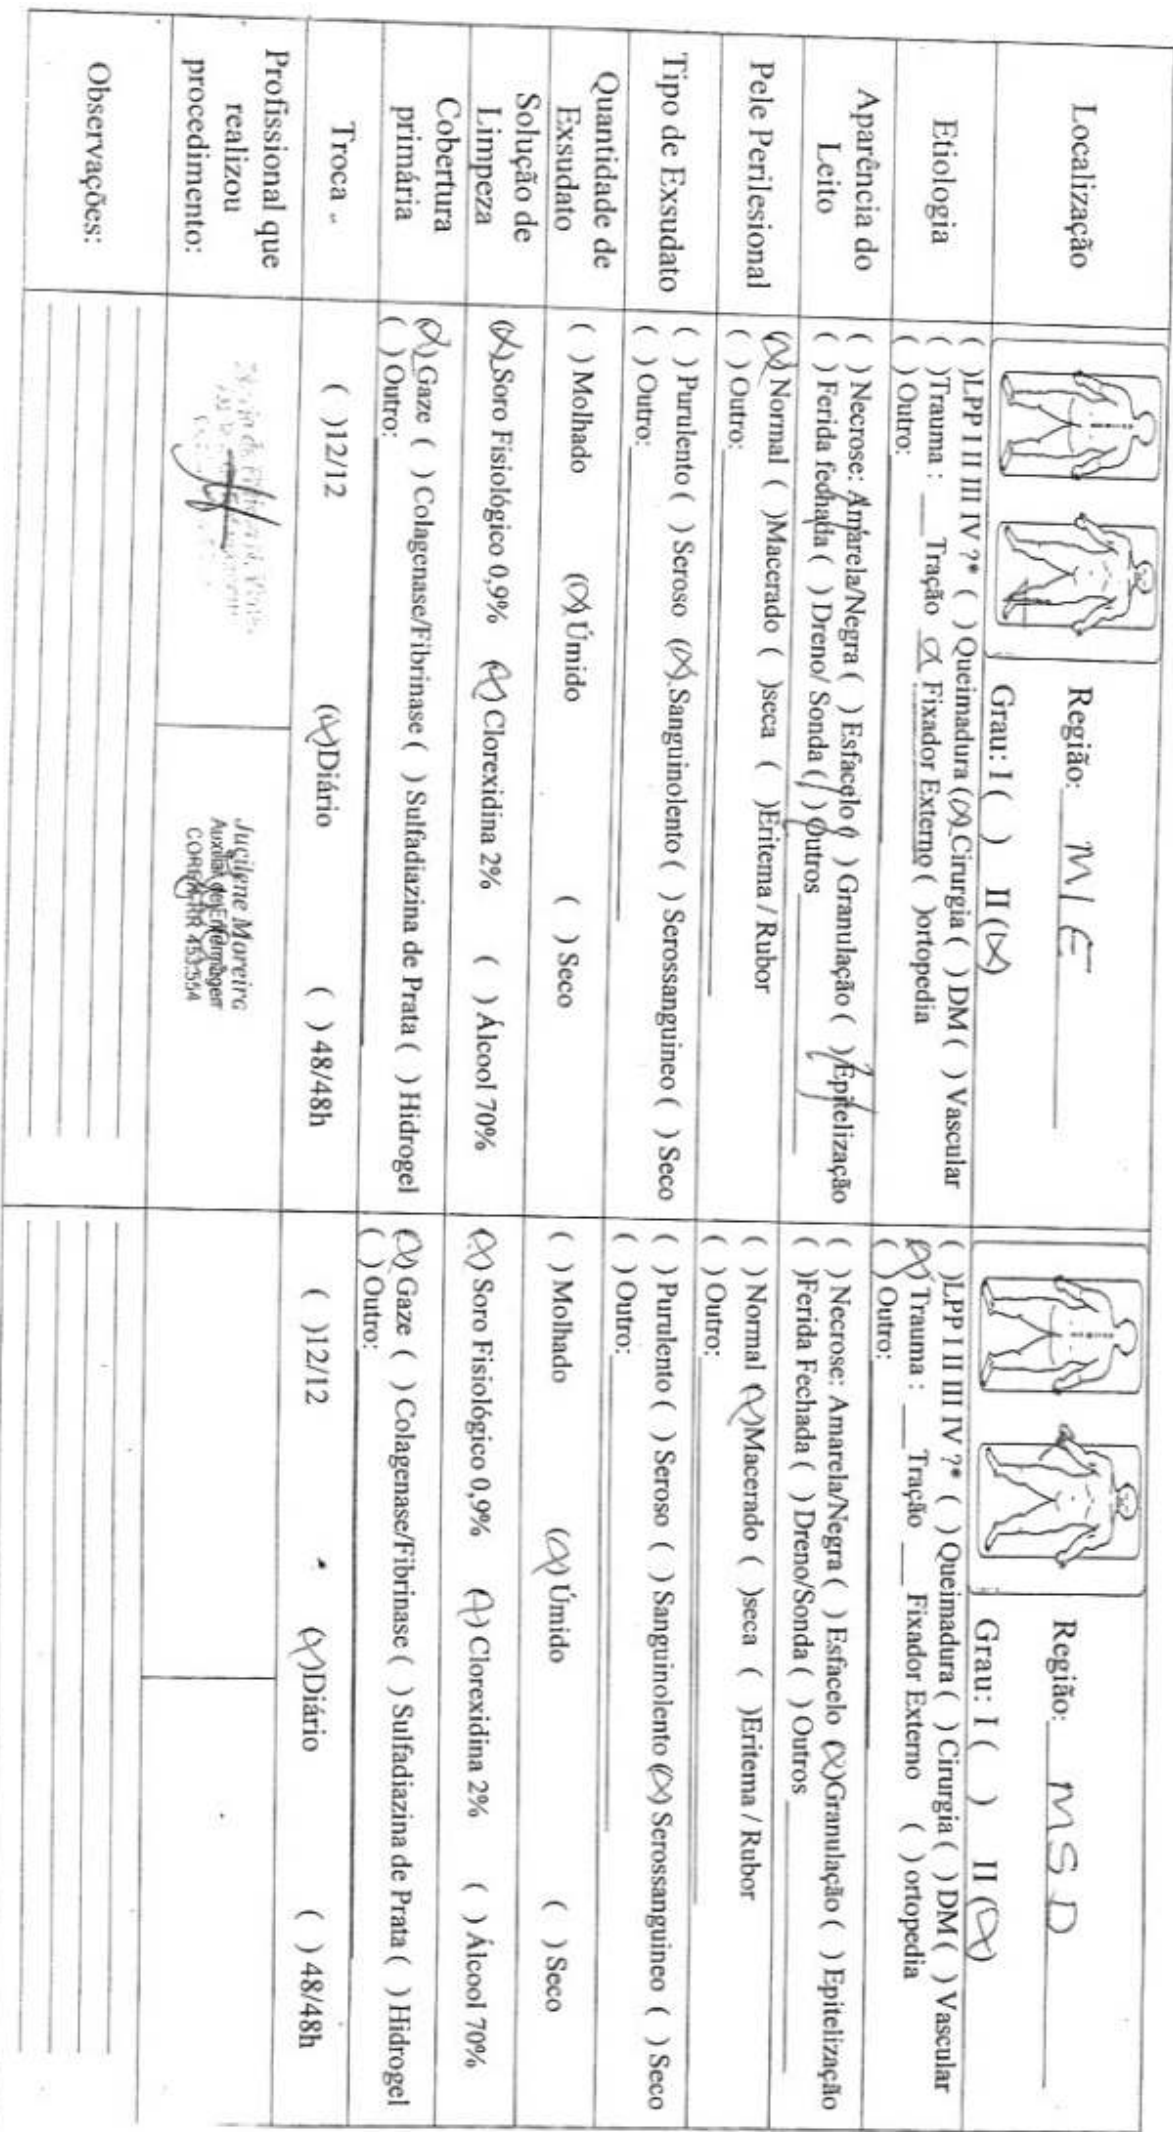 Localização
Região: MIE
Grau: I ( ) II (X)
Região: MSD
Grau: I ( ) II (X)
Etiologia
( )LPP I II III IV ?* ( ) Queimadura (X) Cirurgia ( ) DM ( ) Vascular
( )Trauma : ___ Tração X Fixador Externo ( )ortopedia
( ) Outro:
( )LPP I II III IV ?* ( ) Queimadura ( ) Cirurgia ( ) DM ( ) Vascular
(X) Trauma : ___ Tração ___ Fixador Externo ( ) ortopedia
( ) Outro:
Aparência do
Leito
( ) Necrose: Amarela/Negra ( ) Esfacelo ( ) Granulação ( ) Epitelização
( ) Ferida fechada ( ) Dreno/ Sonda ( ) Outros
( ) Necrose: Amarela/Negra ( ) Esfacelo (X)Granulação ( ) Epitelização
( )Ferida Fechada ( ) Dreno/Sonda ( ) Outros
Pele Perilesional
(X) Normal ( )Macerado ( )seca ( )Eritema / Rubor
( ) Outro:
( ) Normal (X)Macerado ( )seca ( )Eritema / Rubor
( ) Outro:
Tipo de Exsudato
( ) Purulento ( ) Seroso (X) Sanguinolento ( ) Serossanguineo ( ) Seco
( ) Outro:
( ) Purulento ( ) Seroso ( ) Sanguinolento (X) Serossanguineo ( ) Seco
( ) Outro:
Quantidade de
Exsudato
( ) Molhado (X) Úmido ( ) Seco
( ) Molhado (X) Úmido ( ) Seco
Solução de
Limpeza
(X) Soro Fisiológico 0,9% (X) Clorexidina 2% ( ) Álcool 70%
(X) Soro Fisiológico 0,9% (X) Clorexidina 2% ( ) Álcool 70%
Cobertura
primária
(X) Gaze ( ) Colagenase/Fibrinase ( ) Sulfadiazina de Prata ( ) Hidrogel
( ) Outro:
(X) Gaze ( ) Colagenase/Fibrinase ( ) Sulfadiazina de Prata ( ) Hidrogel
( ) Outro:
Troca
( )12/12 (X)Diário ( ) 48/48h
( )12/12 (X)Diário ( ) 48/48h
Profissional que
realizou
procedimento:
Jucilene Moreira
Auxiliar de Enfermagem
COREN-RR 453.554
Observações: